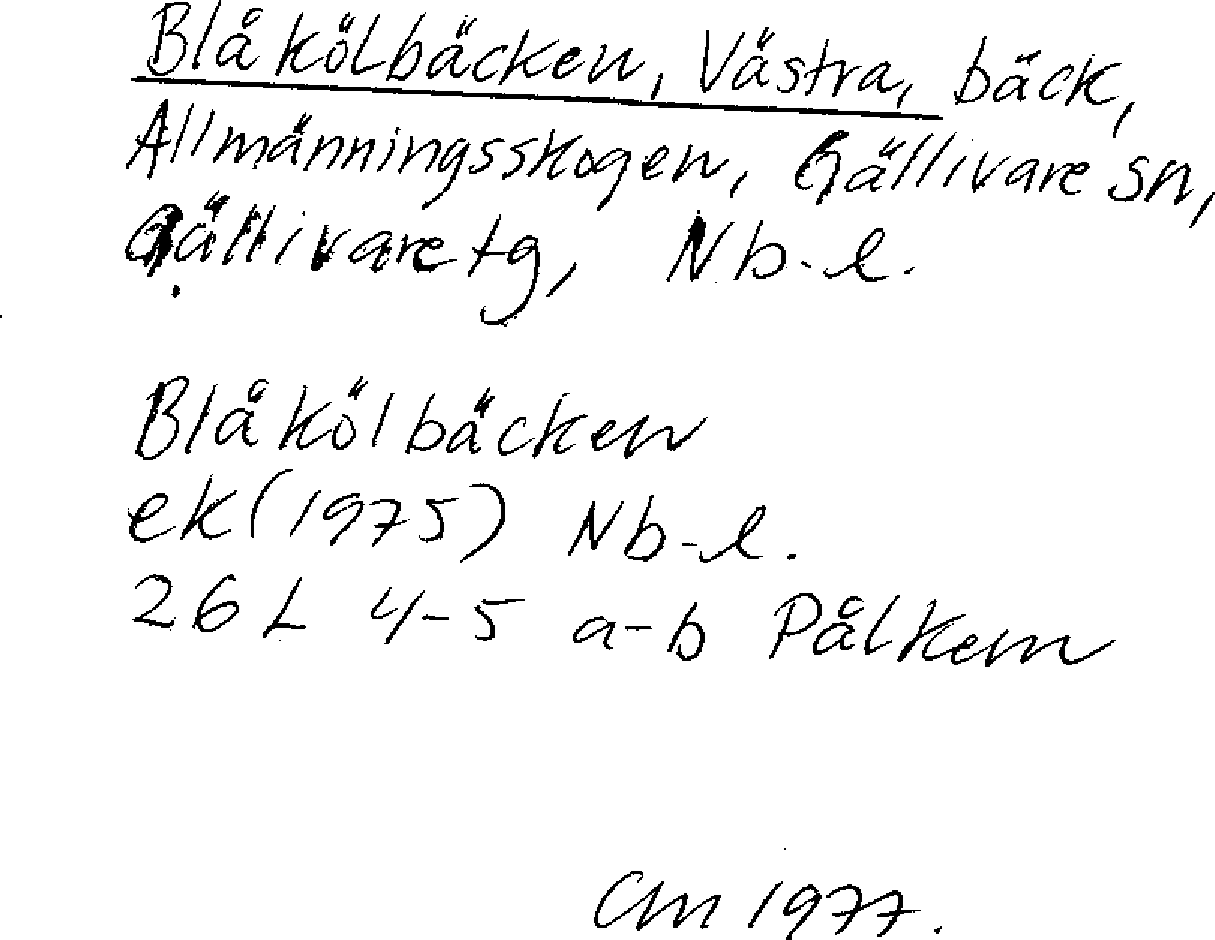 Blåkölbäcken, Västra, bäck,
Allmänningsskogen, Gällivare sn,
Gällivare tg, Nb-l.
Blåkölbäcken
ek (1975) Nb-l.
26 L 4-5 a-b Pålkem
CM 1977.